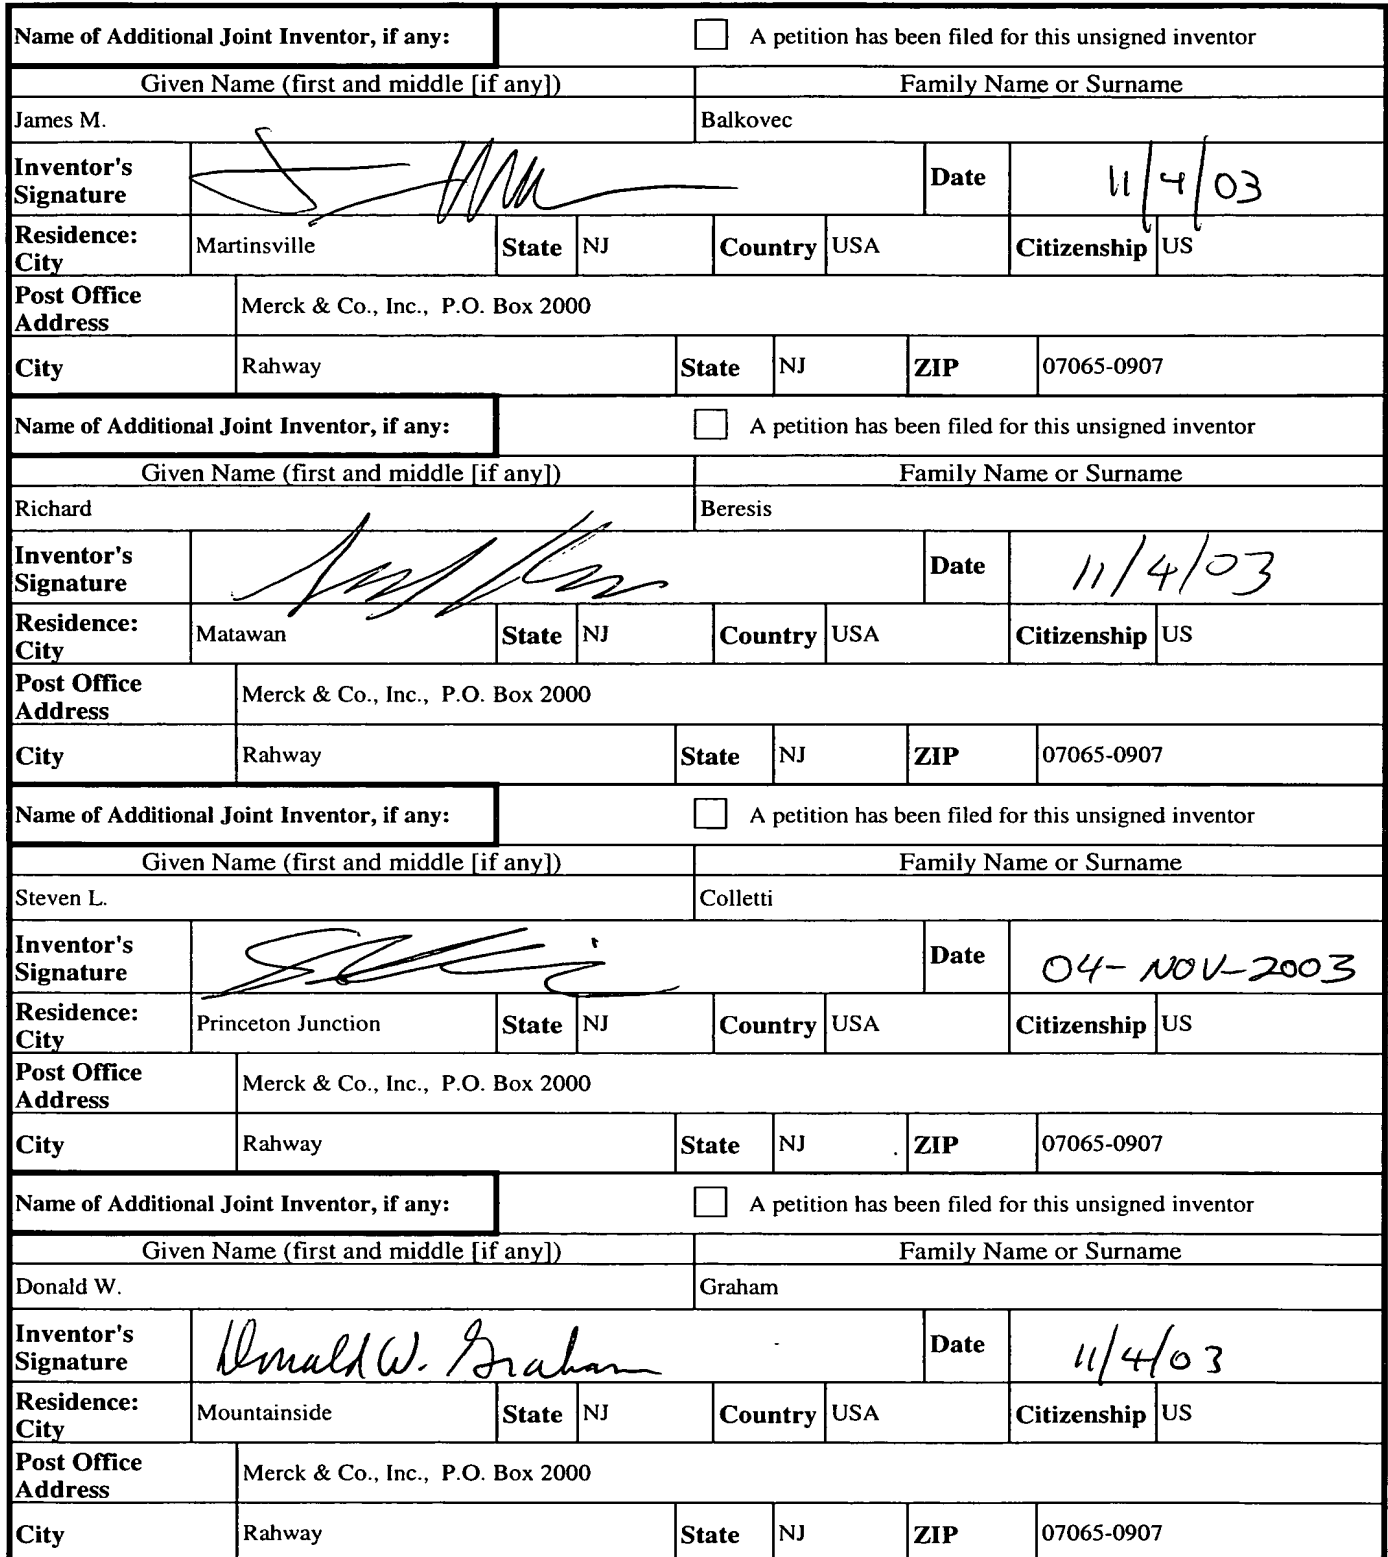 Name of Additional Joint Inventor, if any: A petition has been filed for this unsigned inventor
Given Name (first and middle [if any]) Family Name or Surname
James M. Balkovec
Inventor's Signature Date 11/4/03
Residence: City Martinsville State NJ Country USA Citizenship US
Post Office Address Merck & Co., Inc., P.O. Box 2000
City Rahway State NJ ZIP 07065-0907
Name of Additional Joint Inventor, if any: A petition has been filed for this unsigned inventor
Given Name (first and middle [if any]) Family Name or Surname
Richard Beresis
Inventor's Signature Date 11/4/03
Residence: City Matawan State NJ Country USA Citizenship US
Post Office Address Merck & Co., Inc., P.O. Box 2000
City Rahway State NJ ZIP 07065-0907
Name of Additional Joint Inventor, if any: A petition has been filed for this unsigned inventor
Given Name (first and middle [if any]) Family Name or Surname
Steven L. Colletti
Inventor's Signature Date 04-NOV-2003
Residence: City Princeton Junction State NJ Country USA Citizenship US
Post Office Address Merck & Co., Inc., P.O. Box 2000
City Rahway State NJ ZIP 07065-0907
Name of Additional Joint Inventor, if any: A petition has been filed for this unsigned inventor
Given Name (first and middle [if any]) Family Name or Surname
Donald W. Graham
Inventor's Signature Donald W. Graham Date 11/4/03
Residence: City Mountainside State NJ Country USA Citizenship US
Post Office Address Merck & Co., Inc., P.O. Box 2000
City Rahway State NJ ZIP 07065-0907